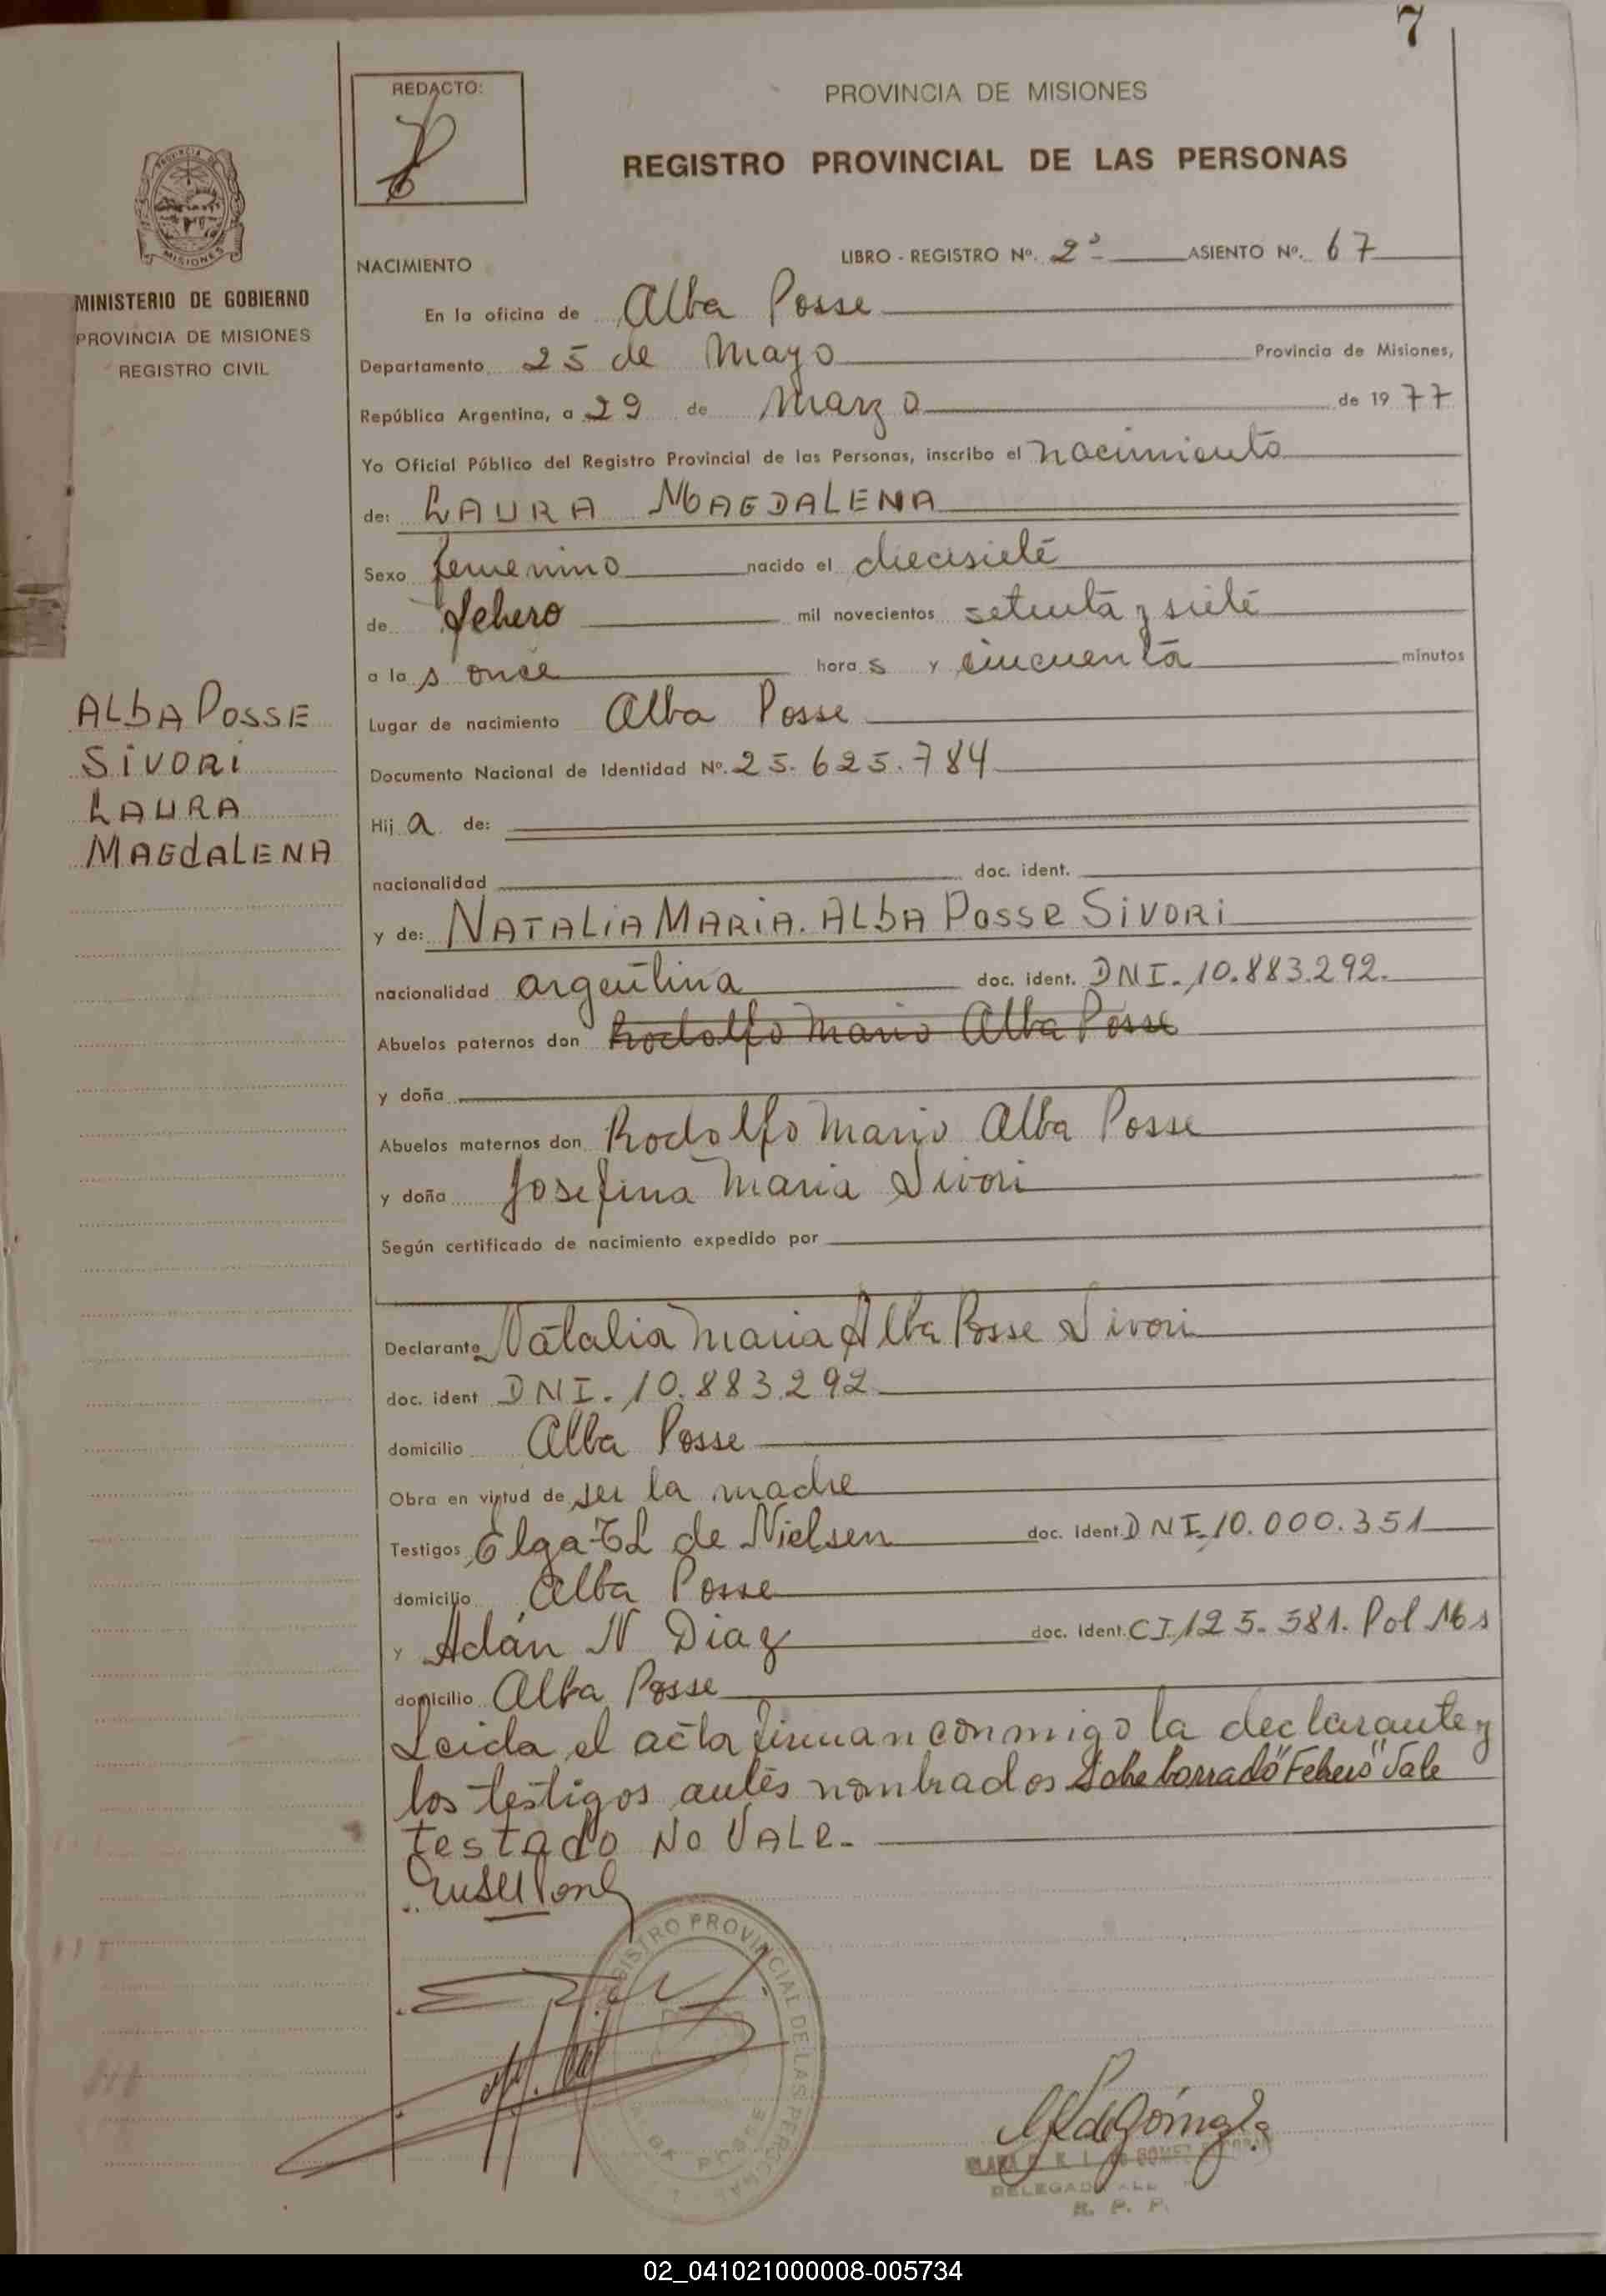 7
REDACTO:
PROVINCIA DE MISIONES
REGISTRO PROVINCIAL DE LAS PERSONAS
PROVINCIA DE
MISIONES
MINISTERIO DE GOBIERNO
PROVINCIA DE MISIONES
REGISTRO CIVIL
ALbA POSSE
SiVORi
LAURA
MAGdALENA
NACIMIENTO
LIBRO - REGISTRO Nº. 2º ASIENTO Nº. 67
En la oficina de Alba Posse
Departamento 25 de Mayo Provincia de Misiones,
República Argentina, a 29 de Marzo de 1977
Yo Oficial Público del Registro Provincial de las Personas, inscribo el nacimiento
de: LAURA MAGDALENA
Sexo femenino nacido el diecisiete
de febero mil novecientos setenta y siete
a las once horas y cincuenta minutos
Lugar de nacimiento Alba Posse
Documento Nacional de Identidad Nº. 25.625.784
Hija de:
nacionalidad doc. ident.
y de: NATALiA MARiA. ALbA POSSE SiVORi
nacionalidad argentina doc. ident. DNI. 10.883.292.
Abuelos paternos don Rodolfo Mario Alba Posse
y doña
Abuelos maternos don Rodolfo Mario Alba Posse
y doña Josefina Maria Sivori
Según certificado de nacimiento expedido por
Declarante Natalia Maria Alba Posse Sivori
doc. ident DNI. 10.883.292
domicilio Alba Posse
Obra en virtud de ser la madre
Testigos Olga de Nielsen doc. Ident. DNI. 10.000.351
domicilio Alba Posse
y Adán N Diaz doc. Ident. CI 125.581. Pol Ms
domicilio Alba Posse
Leida el acta firman conmigo la declarante y
los testigos antes nombrados Sobe borrado "Febero" Vale
testado NO VALE.
REGISTRO PROVINCIAL DE LAS PERSONAS
ALBA POSSE
DELEGADA
R. P. P.
02_041021000008-005734